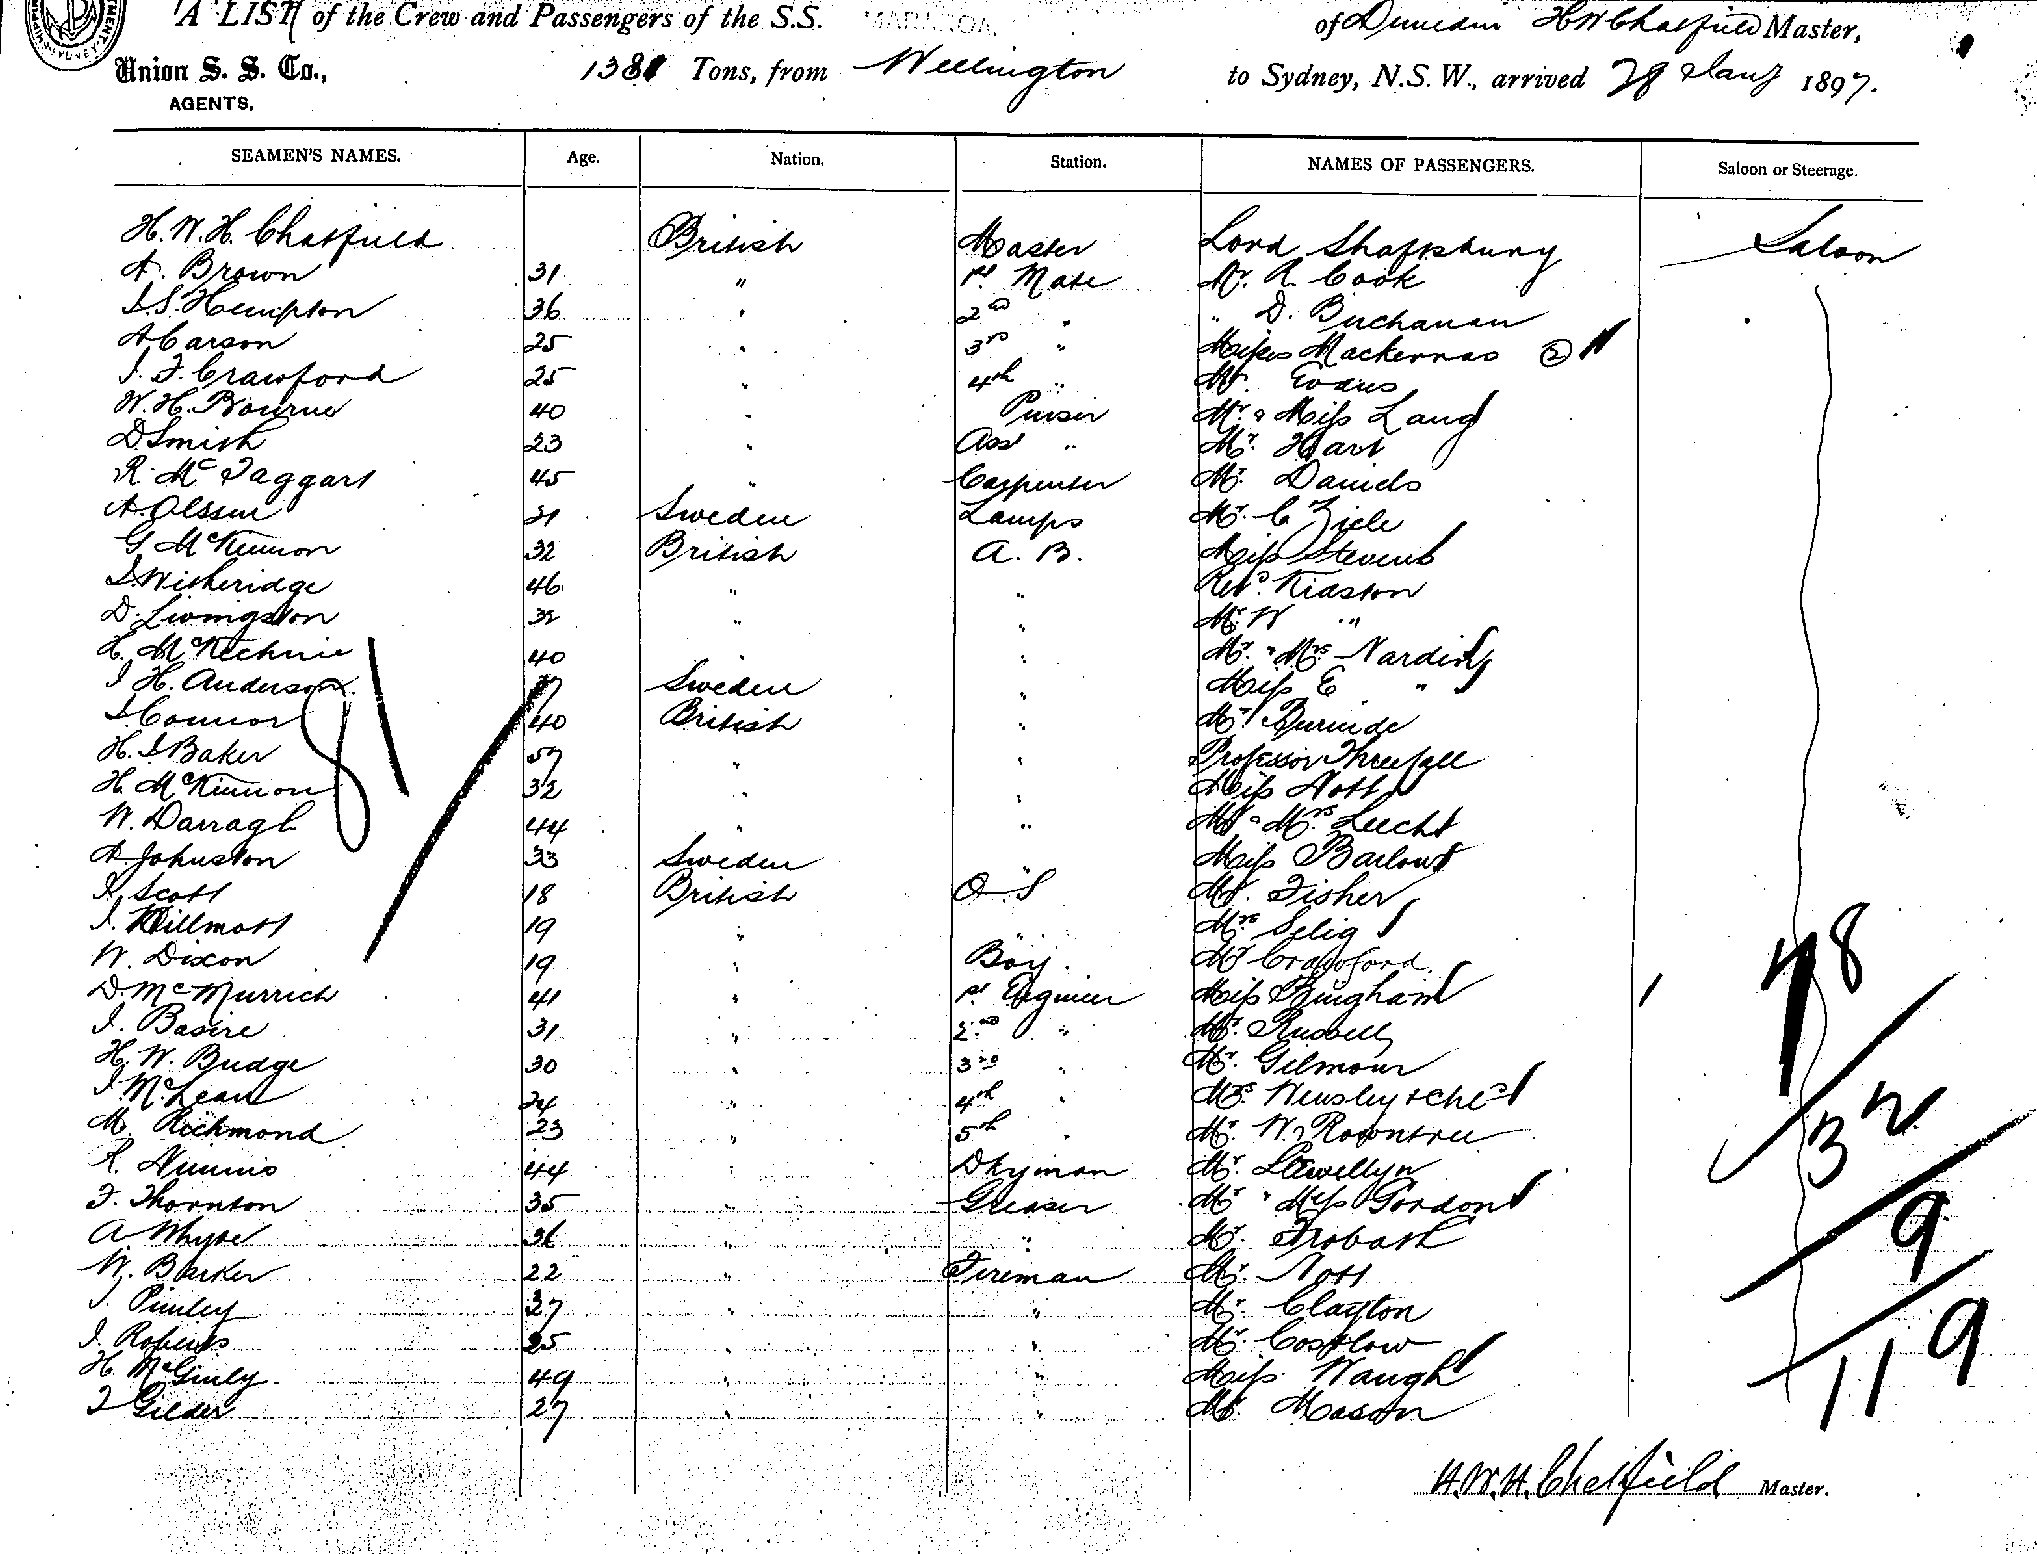 A LIST of the Crew and Passengers of the S.S. of Dunedin H W Chatfield Master,
Union S. S. Co., 1381 Tons, from Wellington to Sydney, N.S.W., arrived 28 Jany 1897.
AGENTS.
SEAMEN'S NAMES. Age. Nation. Station. NAMES OF PASSENGERS. Saloon or Steerage.
H. W. H. Chatfield British Master Lord Shaftsbury Saloon
A. Brown 31 " 1st Mate Mr. R. Cook
J. S. Hempton 36 " 2nd " " D. Buchanan
A Carson 25 " 3rd " Misses Mackennas 2
J. F. Crawford 25 " 4th " Mr. Evans
W. H. Bourne 40 " Purser Mr. & Miss Lang
D Smith 23 " Asst " Mr. Hart
R. McTaggart 45 " Carpenter Mr. Daniels
A. Olssen 21 Sweden Lamps Mr. C Ziele
G McKinnon 32 British A. B. Miss Stevens
J. Witheridge 46 " " Revd. Kidston
D. Livingston 32 " " Mr. W "
H. McKechnie 40 " " Mr. " Mrs Narding
J H. Anderson 37 Sweden " Miss E "
J Connor 40 British " Mr. Burnide
H. J Baker 57 " " Professor Threlfall
H. McKinnon 32 " " Miss Nott
W. Darragh 44 " " Mr & Mrs Leech
A. Johnston 33 Sweden " Miss Barlow
J. Scott 18 British O S Mr. Fisher
J. Willmott 19 " " Mrs Selig
W. Dixon 19 " Boy Mr Crawford
D. McMurrich 41 " 1st Engineer Miss Bingham
J. Basire 31 " 2nd " Mr. Russell
H. W. Budge 30 " 3rd " Mr. Gilmour
J. McLean 24 " 4th " Mrs. Wensley & Chd
M. Richmond 23 " 5th " Mr. W. Rowntree
R. Nimmo 44 " Dkyman Mr. Llewellyn
F. Thornton 35 " Greaser Mr " Miss Gordon
A Whyte 36 " " Mr. Trobath
W. Barker 22 " Fireman Mr. Nott
J. Pinley 37 " " Mr. Clayton
J. Roberts 25 " " Mr. Costlow
H McGinly 49 " " Miss Waugh
J Gilder 27 " " Mr. Mason
81
78
32
9
119
H. W. H. Chatfield Master.